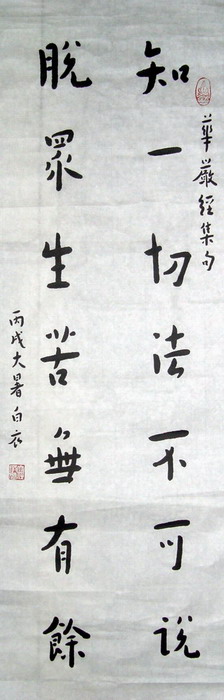 華嚴經集句
知一切法不可說
脫眾生苦無有餘
丙戌大暑白衣